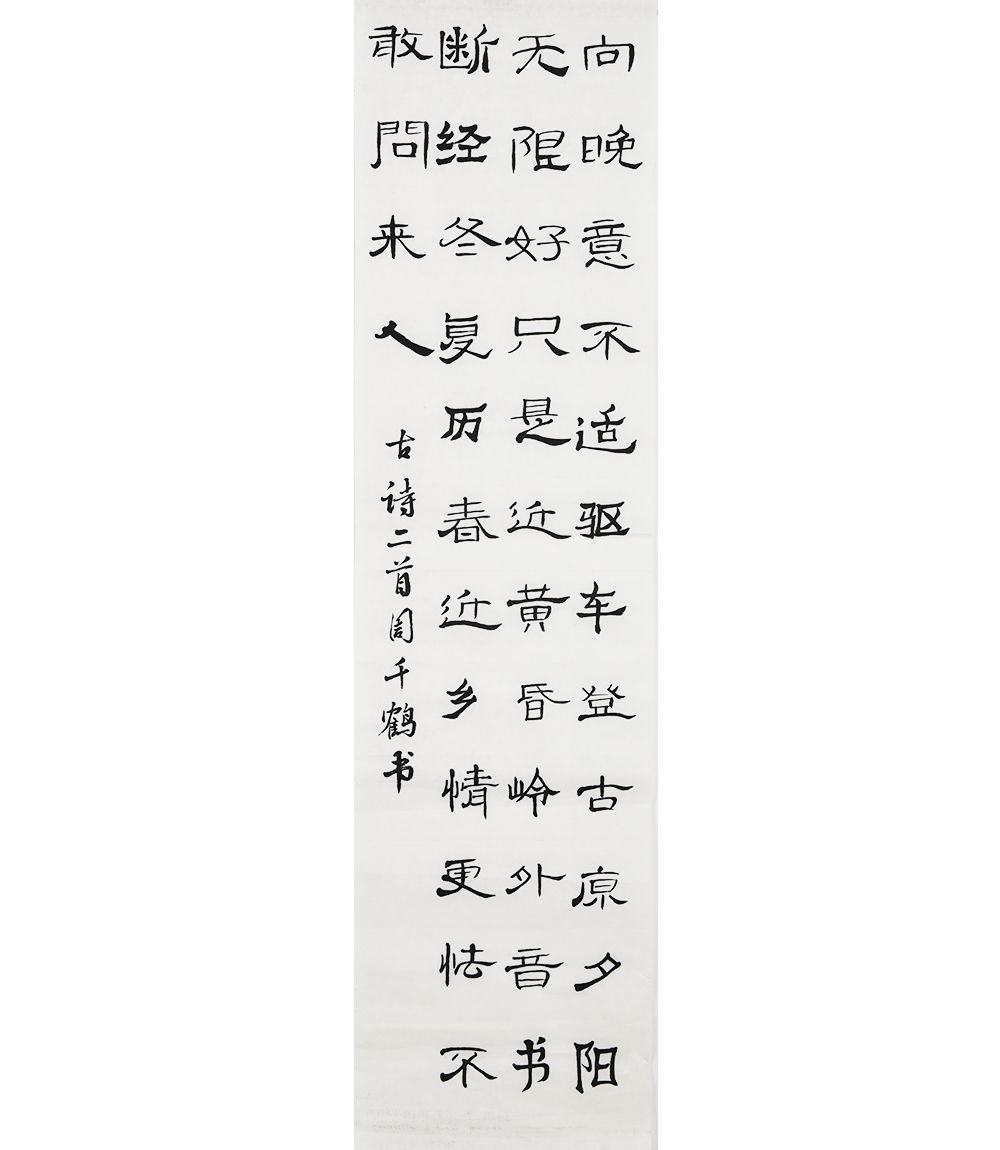 向晚意不适驱车登古原夕阳
无限好只是近黄昏岭外音书
断经冬复历春近乡情更怯不
敢問来人
古诗二首周千鹤书